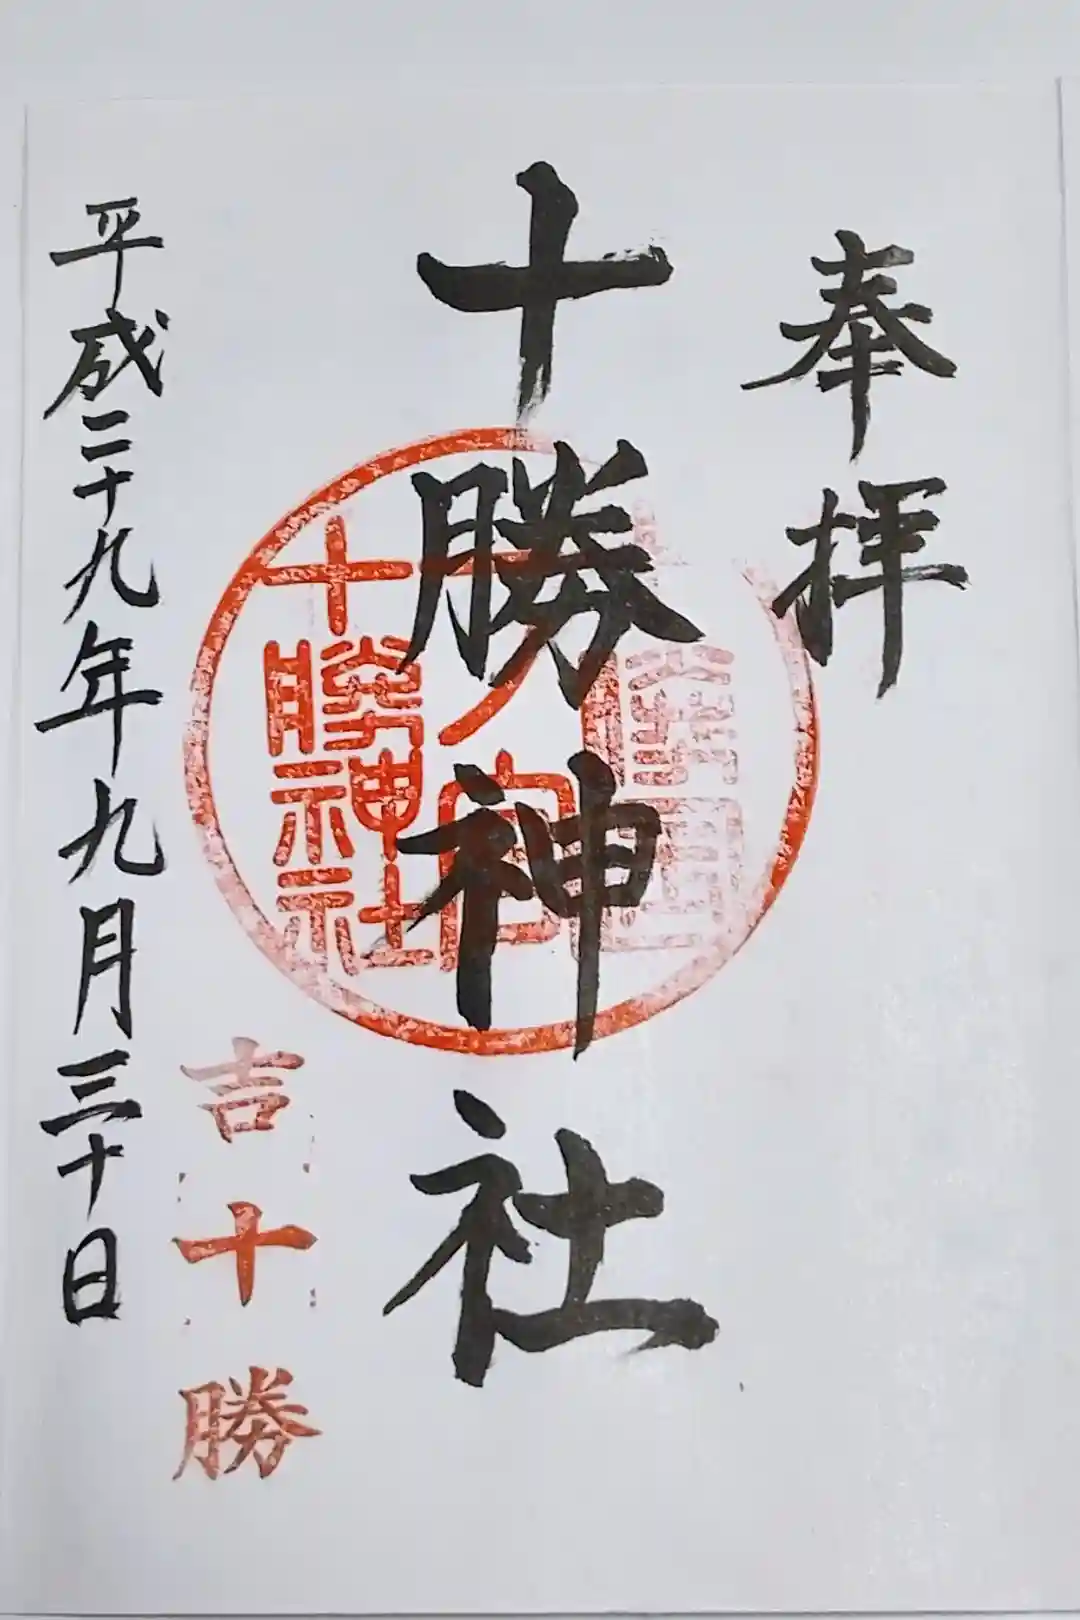 奉拝
十勝神社
十勝国
一ノ宮
十勝神社
吉十勝
平成二十九年九月三十日